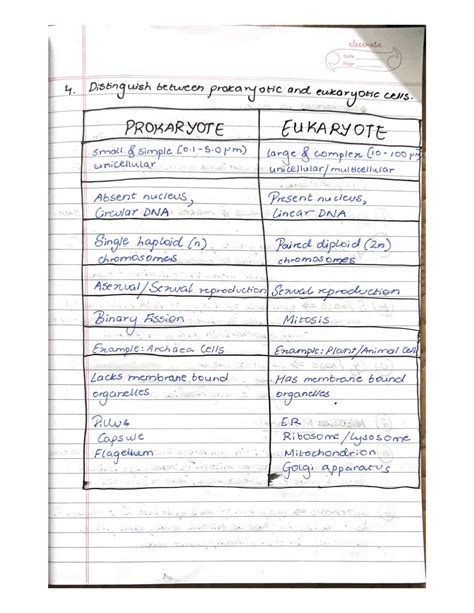 classmate
Date
Page
4. Distinguish between prokaryotic and eukaryotic cells.
PROKARYOTE EUKARYOTE
small & simple (0.1-5.0 μm) large & complex (10-100 μm)
unicellular unicellular/multicellular
Absent nucleus, Present nucleus,
Circular DNA Linear DNA
Single haploid (n) Paired diploid (2n)
chromosomes chromosomes
Asexual/Sexual reproduction Sexual reproduction
Binary Fission Mitosis
Example: Archaea Cells Example: Plant/Animal Cell
Lacks membrane bound Has membrane bound
organelles organelles
Pillus ER
Capsule Ribosome/Lysosome
Flagellum Mitochondrion
Golgi apparatus